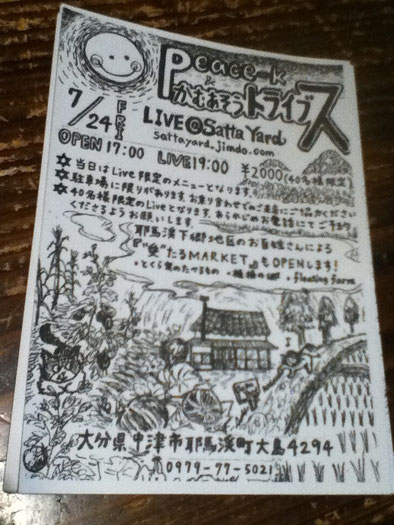 Peace-K
&
かむあそうトライブス
7/24 FRI
LIVE@Satta Yard
sattayard.jimdo.com
OPEN 17:00 LIVE 19:00 ¥2000 (40名様限定)
☆当日はLive限定のメニューとなります。
☆駐車場に限りがあります。お乗り合わせでのご来店にご協力ください
☆40名様限定のLiveとなります。あらかじめのお電話にてご予約
くださるようお願いします。
耶馬溪下郷地区のお百姓さんによる
"愛"たるMARKETもOPENします!
・floating farm
大分県中津市耶馬溪町大島4294
0979-77-5021